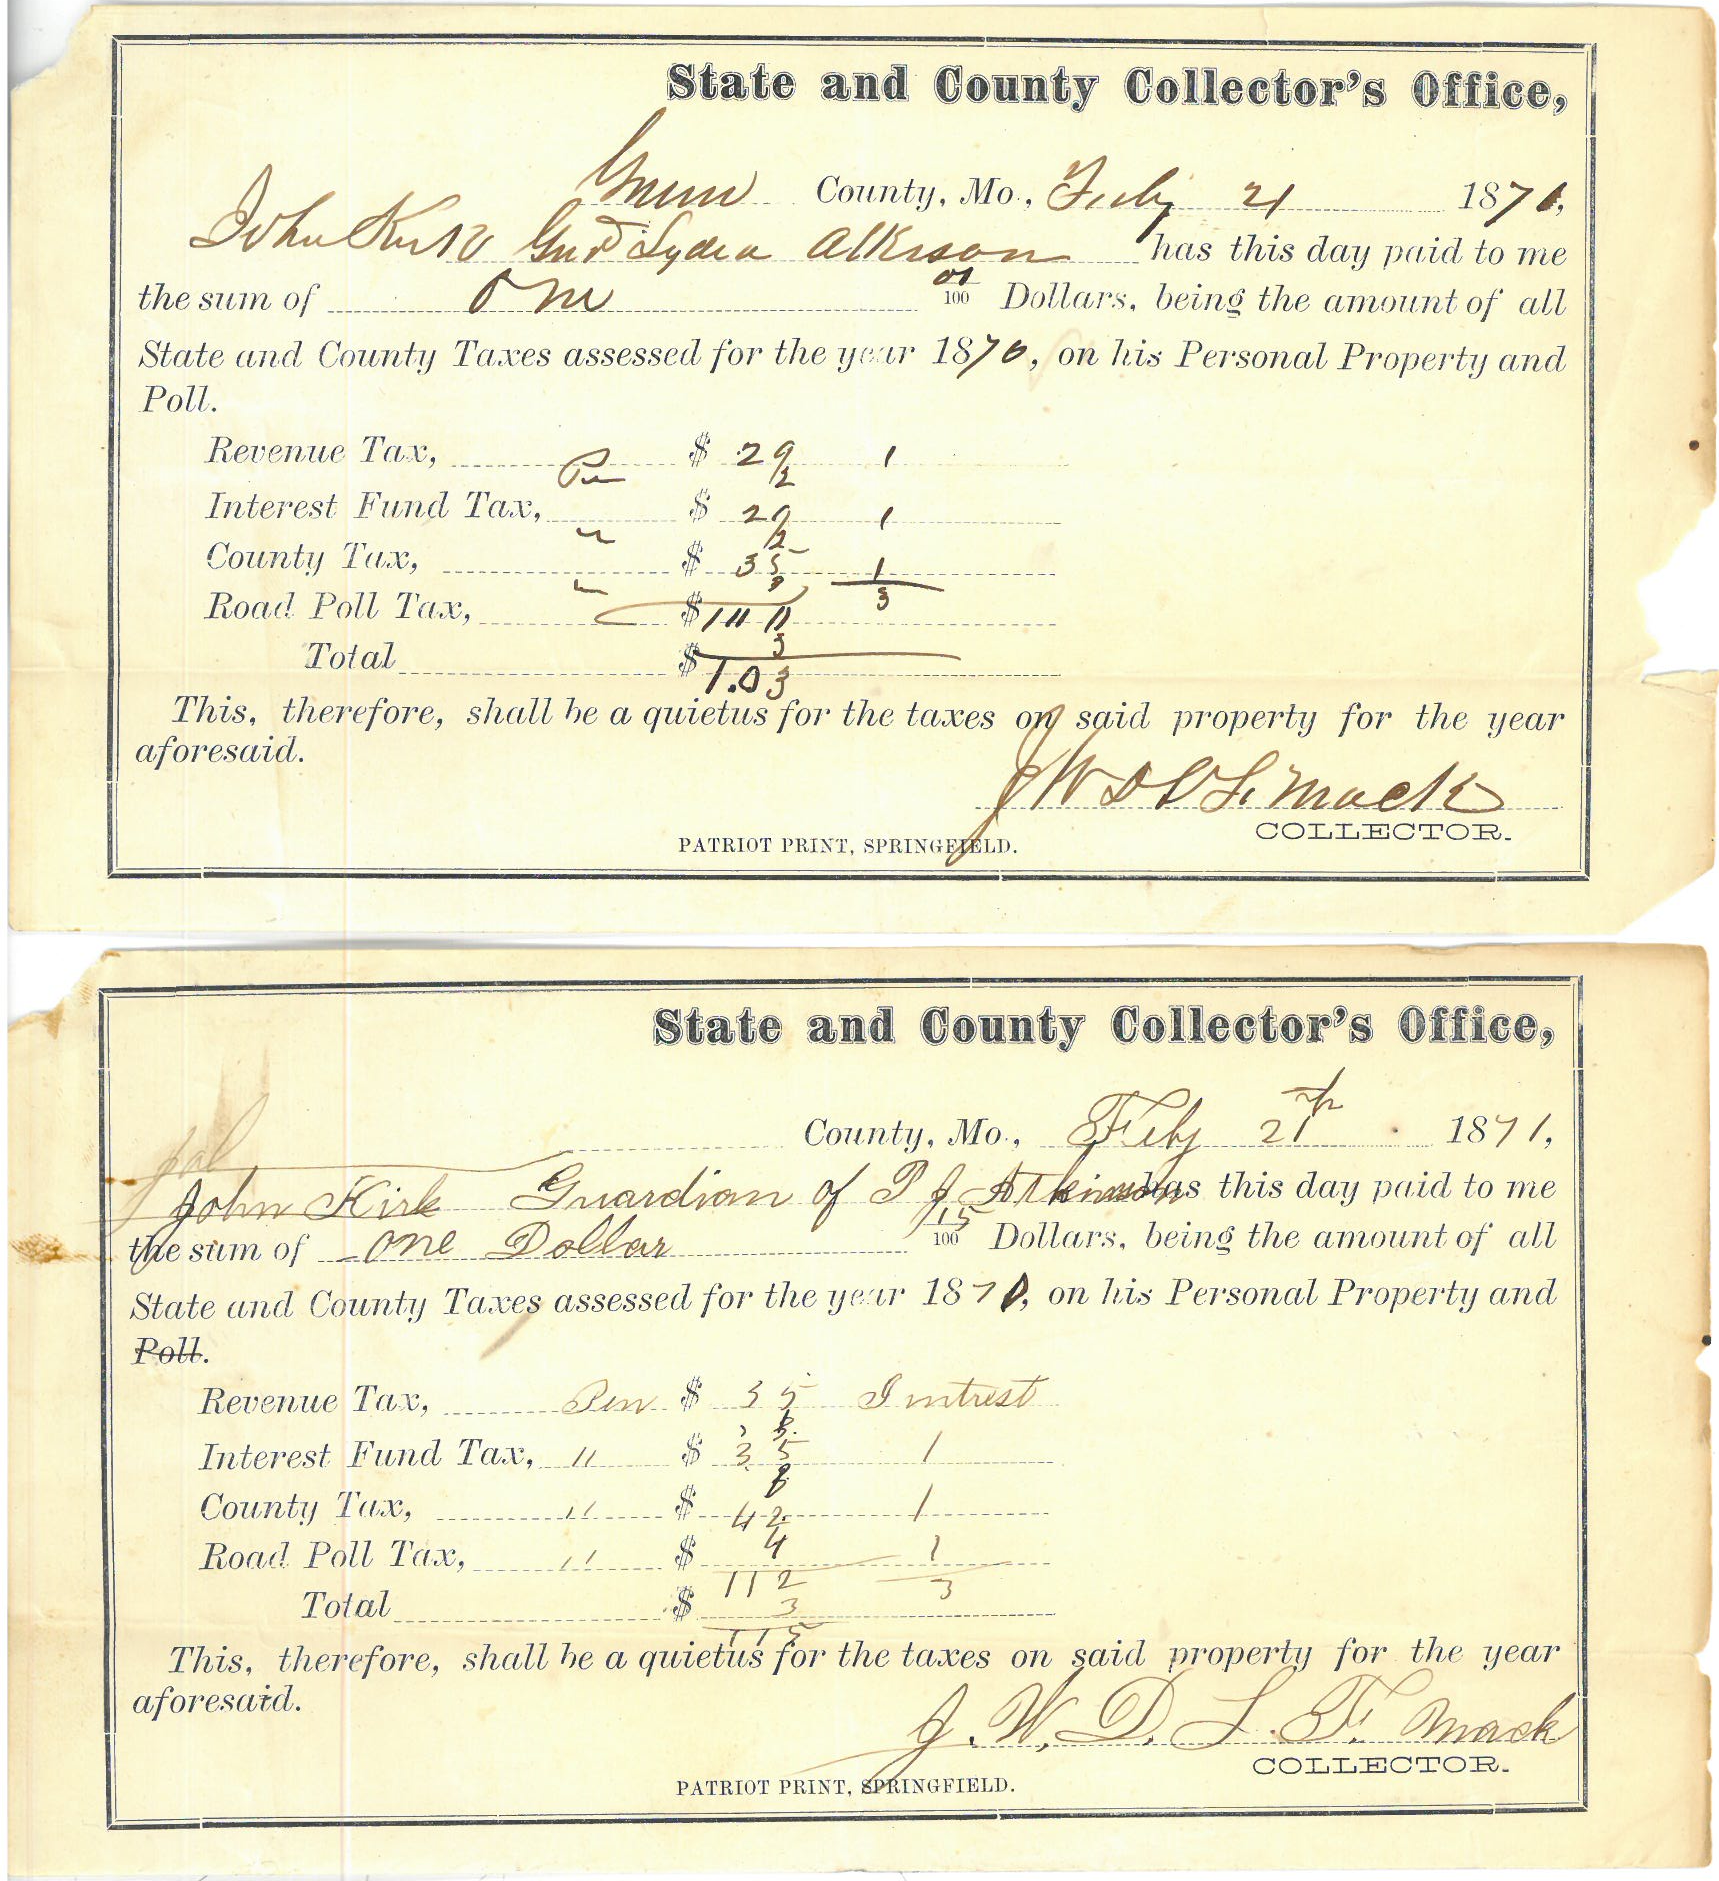 State and County Collector's Office,
Green County, Mo., Feby 21 1871,
John Kirk Gurd Lydia Atkerson has this day paid to me
the sum of One 01/100 Dollars, being the amount of all
State and County Taxes assessed for the year 1870, on his Personal Property and
Poll.
Revenue Tax, Pen $ 29 1
2
Interest Fund Tax, " $ 29 1
2
County Tax, " $ 35 1
3 3
Road Poll Tax, $
3
Total $ 1.03
This, therefore, shall be a quietus for the taxes on said property for the year
aforesaid.
J W D L F Mack
COLLECTOR.
PATRIOT PRINT, SPRINGFIELD.
State and County Collector's Office,
County, Mo., Feby 21th 1871,
John Kirk Guardian of P J Atkinson has this day paid to me
the sum of one Dollar 15/100 Dollars, being the amount of all
State and County Taxes assessed for the year 1870, on his Personal Property and
Poll.
Revenue Tax, Pen $ 35 Intrest
Interest Fund Tax, " $ 35 1
County Tax, " $ 42 1
Road Poll Tax, " $ 4 1
112 3
Total $ 3
115
This, therefore, shall be a quietus for the taxes on said property for the year
aforesaid.
J. W. D. L. F. Mack
COLLECTOR.
PATRIOT PRINT, SPRINGFIELD.